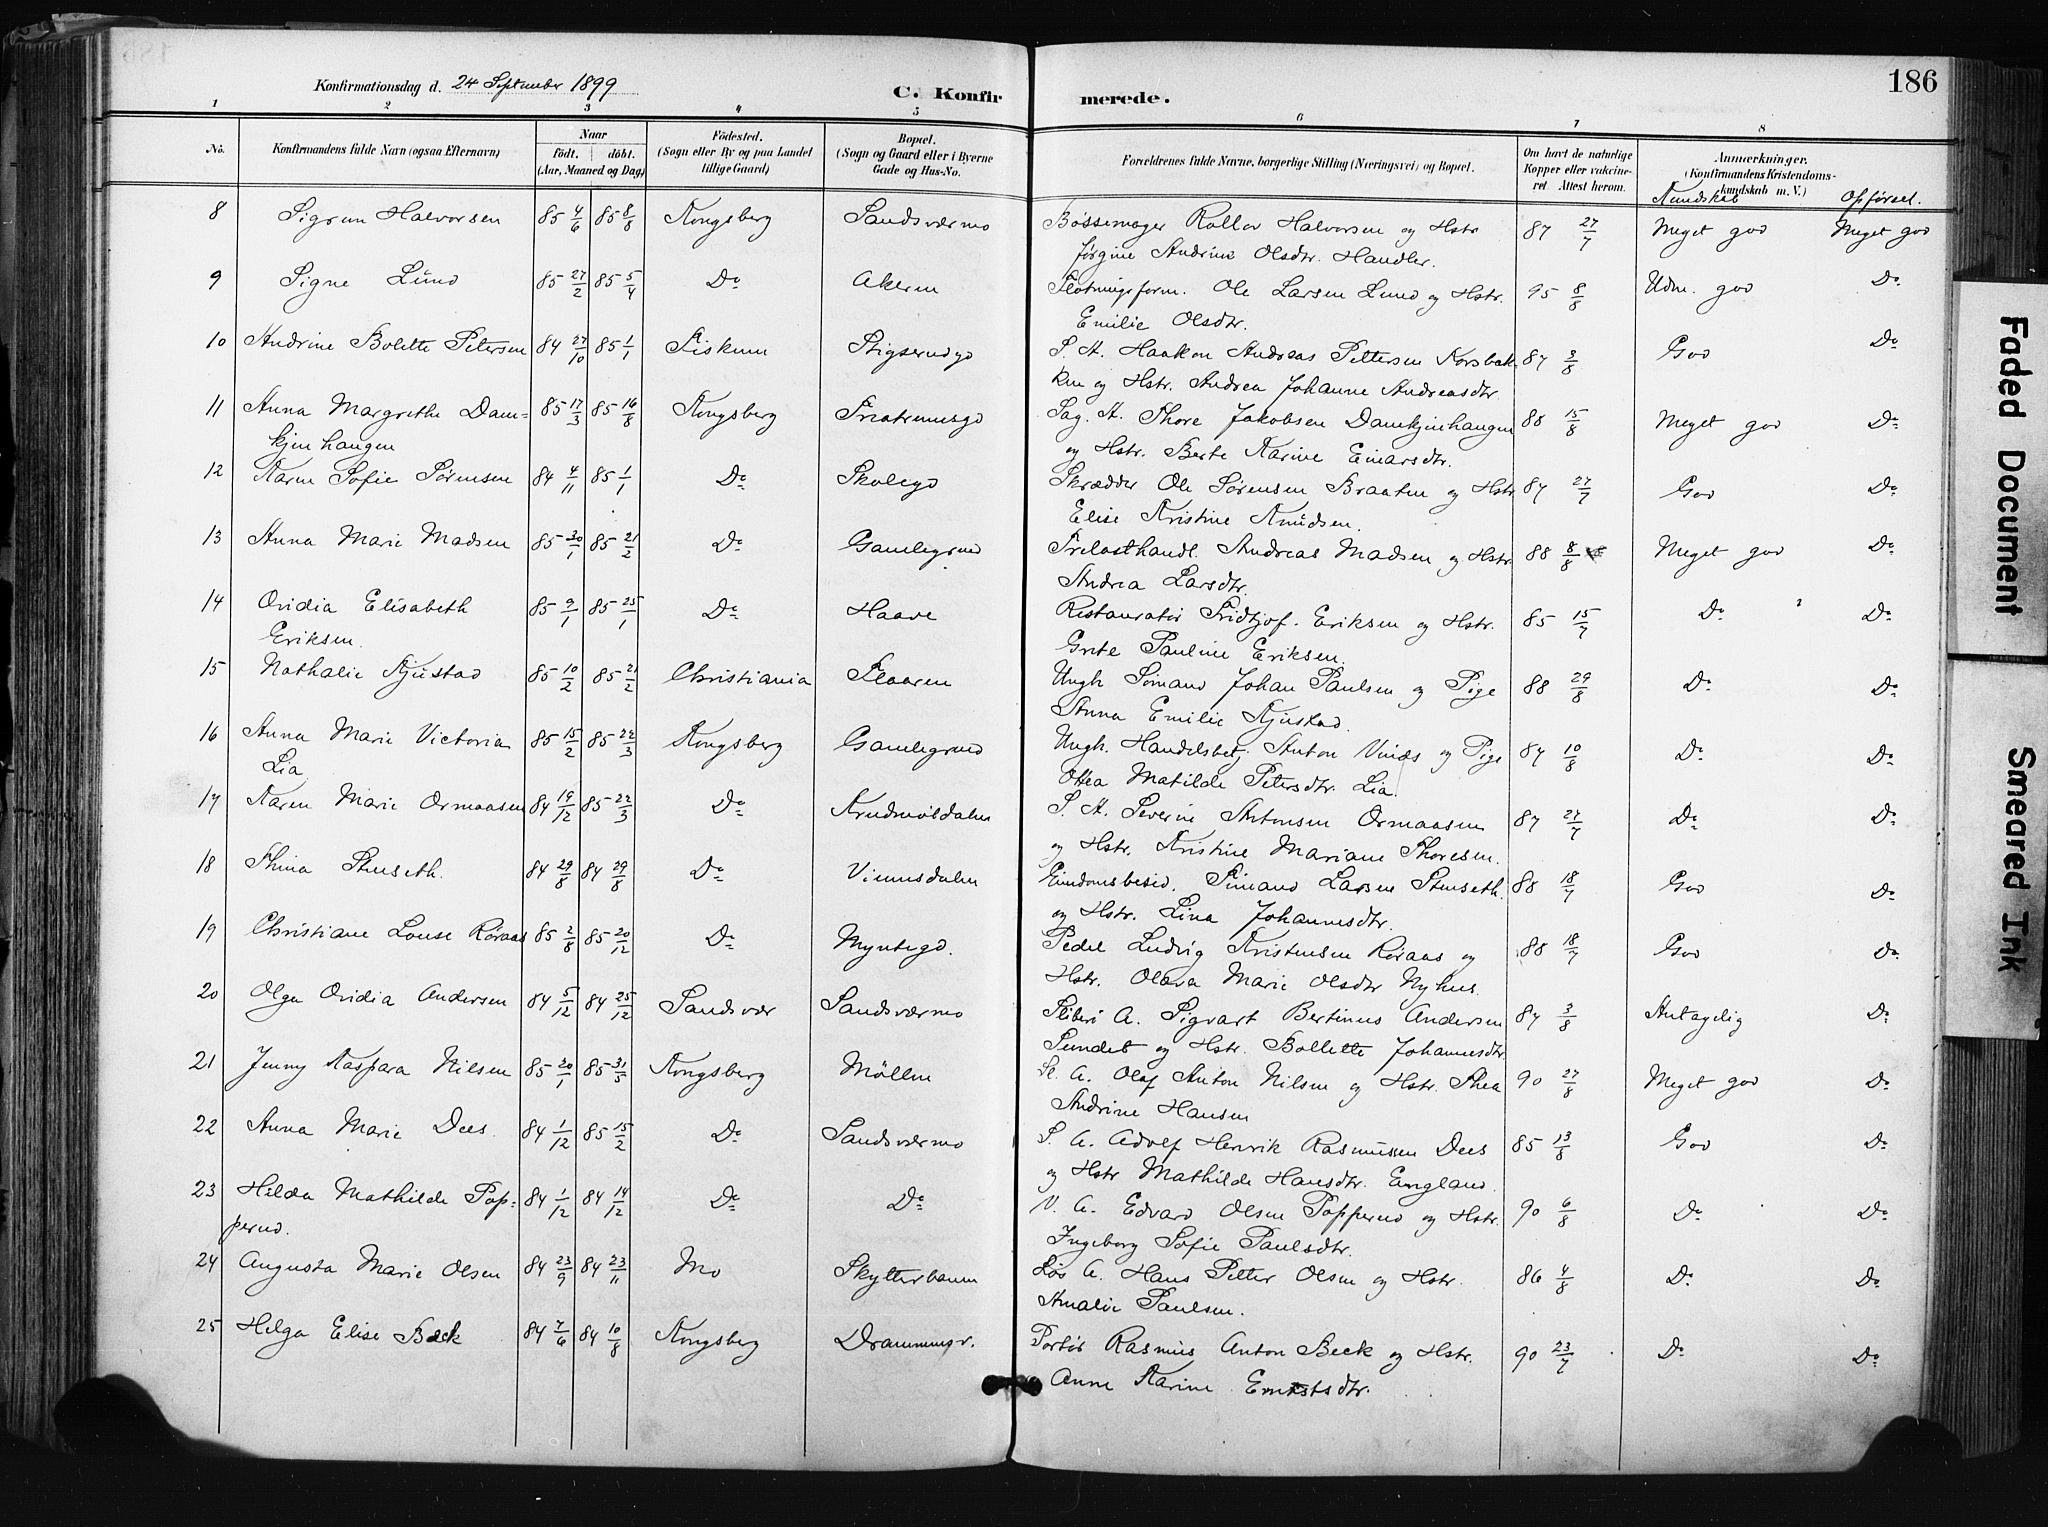 186
Konfirmationsdag d. 24 September 1899
C. Konfir merede.
1 2 3 4 5 6 7 8
No. Konfirmandens fulde Navn (ogsaa Efternavn) Naar født. døbt. (Aar, Maaned og Dag) Fødested. (Sogn eller By og paa Landet tillige Gaard) Bopæl. (Sogn og Gaard eller i Byerne Gade og Hus-No. Forældrenes fulde Navne, borgerlige Stilling (Næringsvei) og Bopæl. Om havt de naturlige Kopper eller vakcineret. Attest herom. Anmærkninger. (Konfirmandens Kristendomskundskab m. V.)
Kundskab Opførsel.
8 Sigrun Halvorsen 85 4/6 85 8/8 Kongsberg Sandsværmo Bøssemager Rollov Halvorsen og Hstr 87 27/7 Meget god Meget god
Jørgine Andrine Olsdtr. Handler.
9 Signe Lund 85 27/2 85 5/4 Do Akeren Fløtningsform. Ole Larsen Lund og Hstr. 95 8/8 Udm. god Do
Emilie Olsdtr.
10 Andrine Bolette Petersen 84 27/10 85 1/1 Fiskum Stigerudgd S. A. Haakon Andreas Pettersen Korsbak- 87 3/8 God Do
ken og Hstr. Andrea Johanne Andreasdtr.
11 Anna Margrethe Dam- 85 17/3 85 16/8 Kongsberg Sag. A. Thore Jakobsen Damkjenhaugen 88 15/8 Meget god Do
kjenhaugen og Hstr. Berte Karine Einarsdtr.
12 Karen Sofie Sørensen 84 4/11 85 1/1 Do Skolegd Skrædder Ole Sørensen Braaten og Hstr 87 27/7 God Do
Elise Kristine Knudsen.
13 Anna Marie Madsen 85 30/1 85 21/2 Do Gamlegrend Trelasthandl. Andreas Madsen og Hstr 88 8/8 Meget god Do
Andrea Larsdtr.
14 Ovidia Elisabeth 85 9/1 85 25/1 Do Haave Restauratør Fridtjof Eriksen og Hstr. 85 15/7 Do Do
Eriksen. Grete Pauline Eriksen.
15 Nathalie Kjustad 85 10/2 85 21/2 Christiania Flaaren Ungk. Sømand Johan Paulsen og Pige 88 29/8 Do Do
Anna Emilie Kjustad.
16 Anna Marie Victoria 85 15/2 85 22/3 Kongsberg Gamlegrend Ungk. Handelsbetj. Anton Vinæs og Pige 84 10/8 Do Do
Lia Othea Matilde Petersdtr. Lia.
17 Karen Marie Ormaasen 84 19/12 85 22/3 Do Krudmøldalen S. A. Severin Antonsen Ormaasen 87 27/7 Do Do
og Hstr. Kristine Mariane Thoresen.
18 Thina Stenseth. 84 29/8 84 29/8 Do Vinnesdalen Eiendomsbesid. Simand Larsen Stenseth. 88 18/7 God Do
og Hstr. Lina Johannesdtr.
19 Christiane Louse Røraas 85 2/8 85 20/12 Do Myntegd. Pedel Ludvig Kristensen Røraas og 88 18/7 God Do
Hstr. Olava Marie Olsdtr Nyhus.
20 Olga Ovidia Andersen 84 5/12 84 25/12 Sandsvær Sandsværmo Sliberi A. Sigvart Bertinus Andersen 87 3/8 Antagelig Do
Sundet og Hstr. Bollette Johannesdtr.
21 Jenny Kaspara Nilsen 85 20/1 85 31/5 Kongsberg Møllen Sl. A. Olaf Anton Nilsen og Hstr. Thea 90 27/8 Meget god Do
Andrine Hansen
22 Anna Marie Dees. 84 1/12 85 15/2 Do Sandsværmo S. A. Adolf Henrik Rasmussen Dees 85 13/8 God Do
og Hstr Mathilde Hansdtr. England.
23 Hilda Mathilde Pop- 84 1/12 84 14/12 Do Do V. A. Edvard Olsen Popperud og Hstr. 90 6/8 Do Do
perud. Ingeborg Sofie Paulsdtr.
24 Augusta Marie Olsen 84 23/9 84 23/11 Mo Skytterbanen Løs A. Hans Petter Olsen og Hstr. 86 4/8 Do Do
Amalie Paulsen.
25 Helga Elise Beck 84 7/6 84 10/8 Kongsberg Drammensv. Portør Rasmus Anton Beck og Hstr. 90 23/7 Do Do
Anne Karine Ernstsdtr.
Faded Document
Smeared Ink